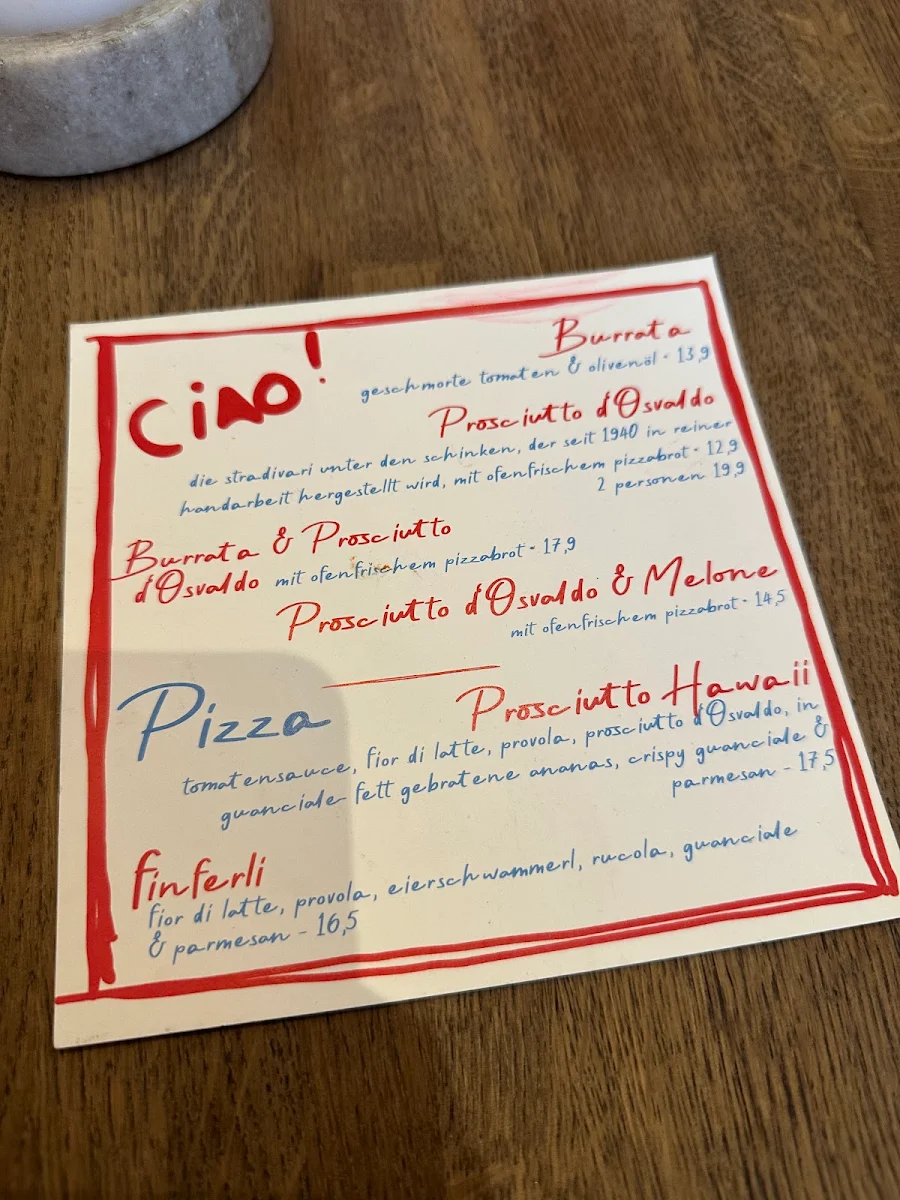 Ciao!
Burrata
geschmorte tomaten & olivenöl - 13,9
Prosciutto d'Osvaldo
die stradivari unter den schinken, der seit 1940 in reiner
handarbeit hergestellt wird, mit ofenfrischem pizzabrot - 12,9
2 personen 19,9
Burrata & Prosciutto
d'Osvaldo mit ofenfrischem pizzabrot - 17,9
Prosciutto d'Osvaldo & Melone
mit ofenfrischem pizzabrot - 14,5
Pizza
Prosciutto Hawaii
tomatensauce, fior di latte, provola, prosciutto d'Osvaldo, in
guanciale fett gebratene ananas, crispy guanciale &
parmesan - 17,5
finferli
fior di latte, provola, eierschwammerl, rucola, guanciale
& parmesan - 16,5